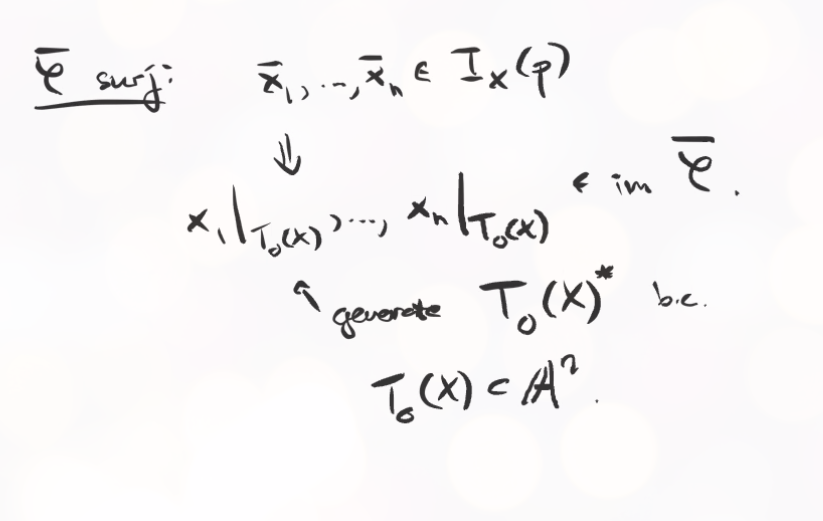 φ̄ surj: x̄₁, ..., x̄ₙ ∈ I_X(p)
⇓
x₁|_{T₀(X)}, ..., xₙ|_{T₀(X)} ∈ im φ̄.
↖ generate T₀(X)* b.c.
T₀(X) ⊂ 𝔸ⁿ.